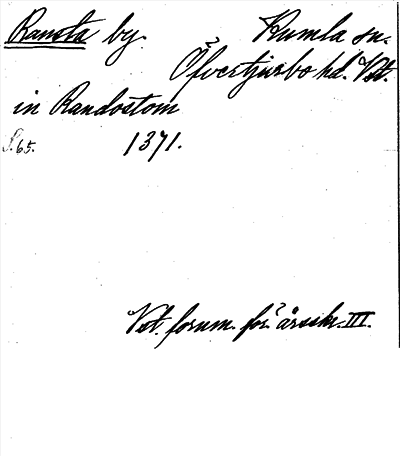 Ransta by. Kumla sn.
Öfvertjurbo hd. Vst.
in Randostom
S. 65. 1371.
Vst. fornm. för. årsskr. III.